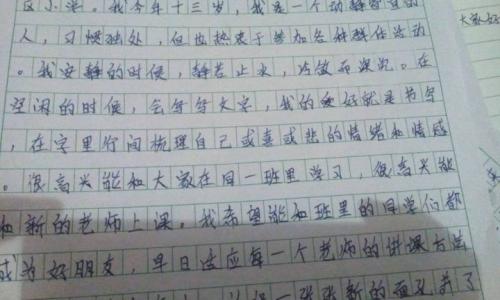 区小学。我今年十三岁,我是一个动静皆宜的
大家好
人,习惯独处,但也热衷于参加各种趣味活动
。我安静的时候,静若止水,冷傲而深沉。在
空闲的时候,会写写文字,我的爱好就是书写
,在字里行间梳理自己或喜或悲的情绪和情感
。很高兴能和大家在同一班里学习,很高兴能
和新的老师上课。我希望能和班里的同学们都
成为好朋友,早日适应每一个老师的讲课方法
一张张新的面孔,为了